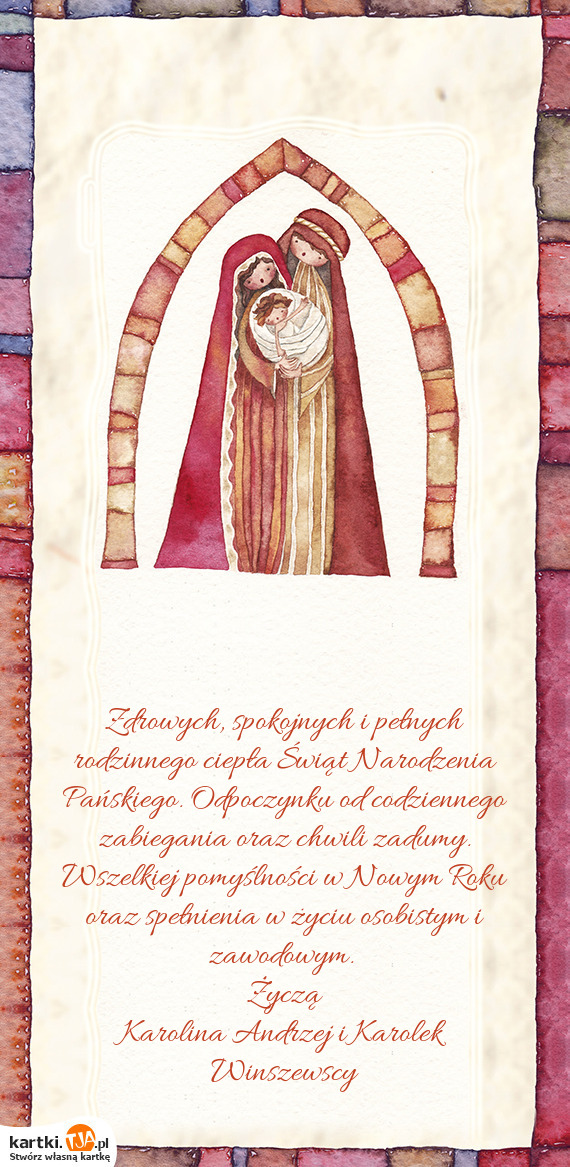 Zdrowych, spokojnych i pełnych
rodzinnego ciepła Świąt Narodzenia
Pańskiego. Odpoczynku od codziennego
zabiegania oraz chwili zadumy.
Wszelkiej pomyślności w Nowym Roku
oraz spełnienia w życiu osobistym i
zawodowym.
Życzą
Karolina Andrzej i Karolek
Winszewscy
kartki.TJA.pl
Stwórz własną kartkę